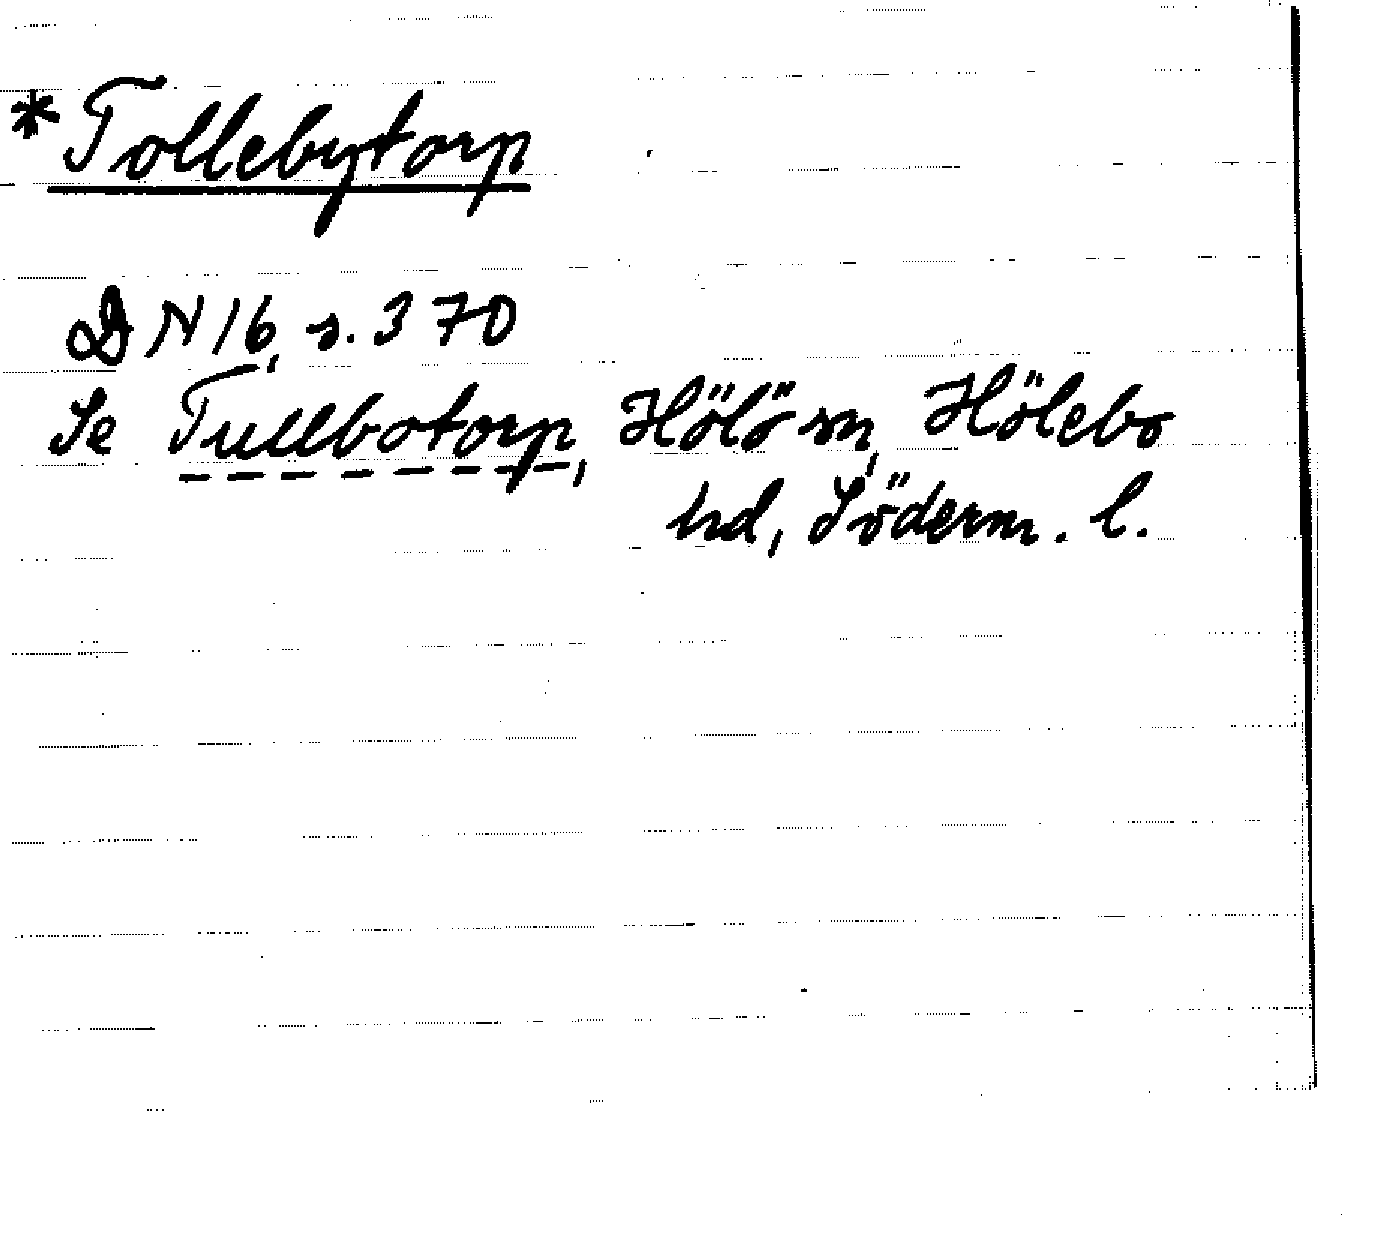 *Tollebytorp
DN 16, s. 370
Se Tullbotorp, Hölö sn, Hölebo
hd, Söderm. l.